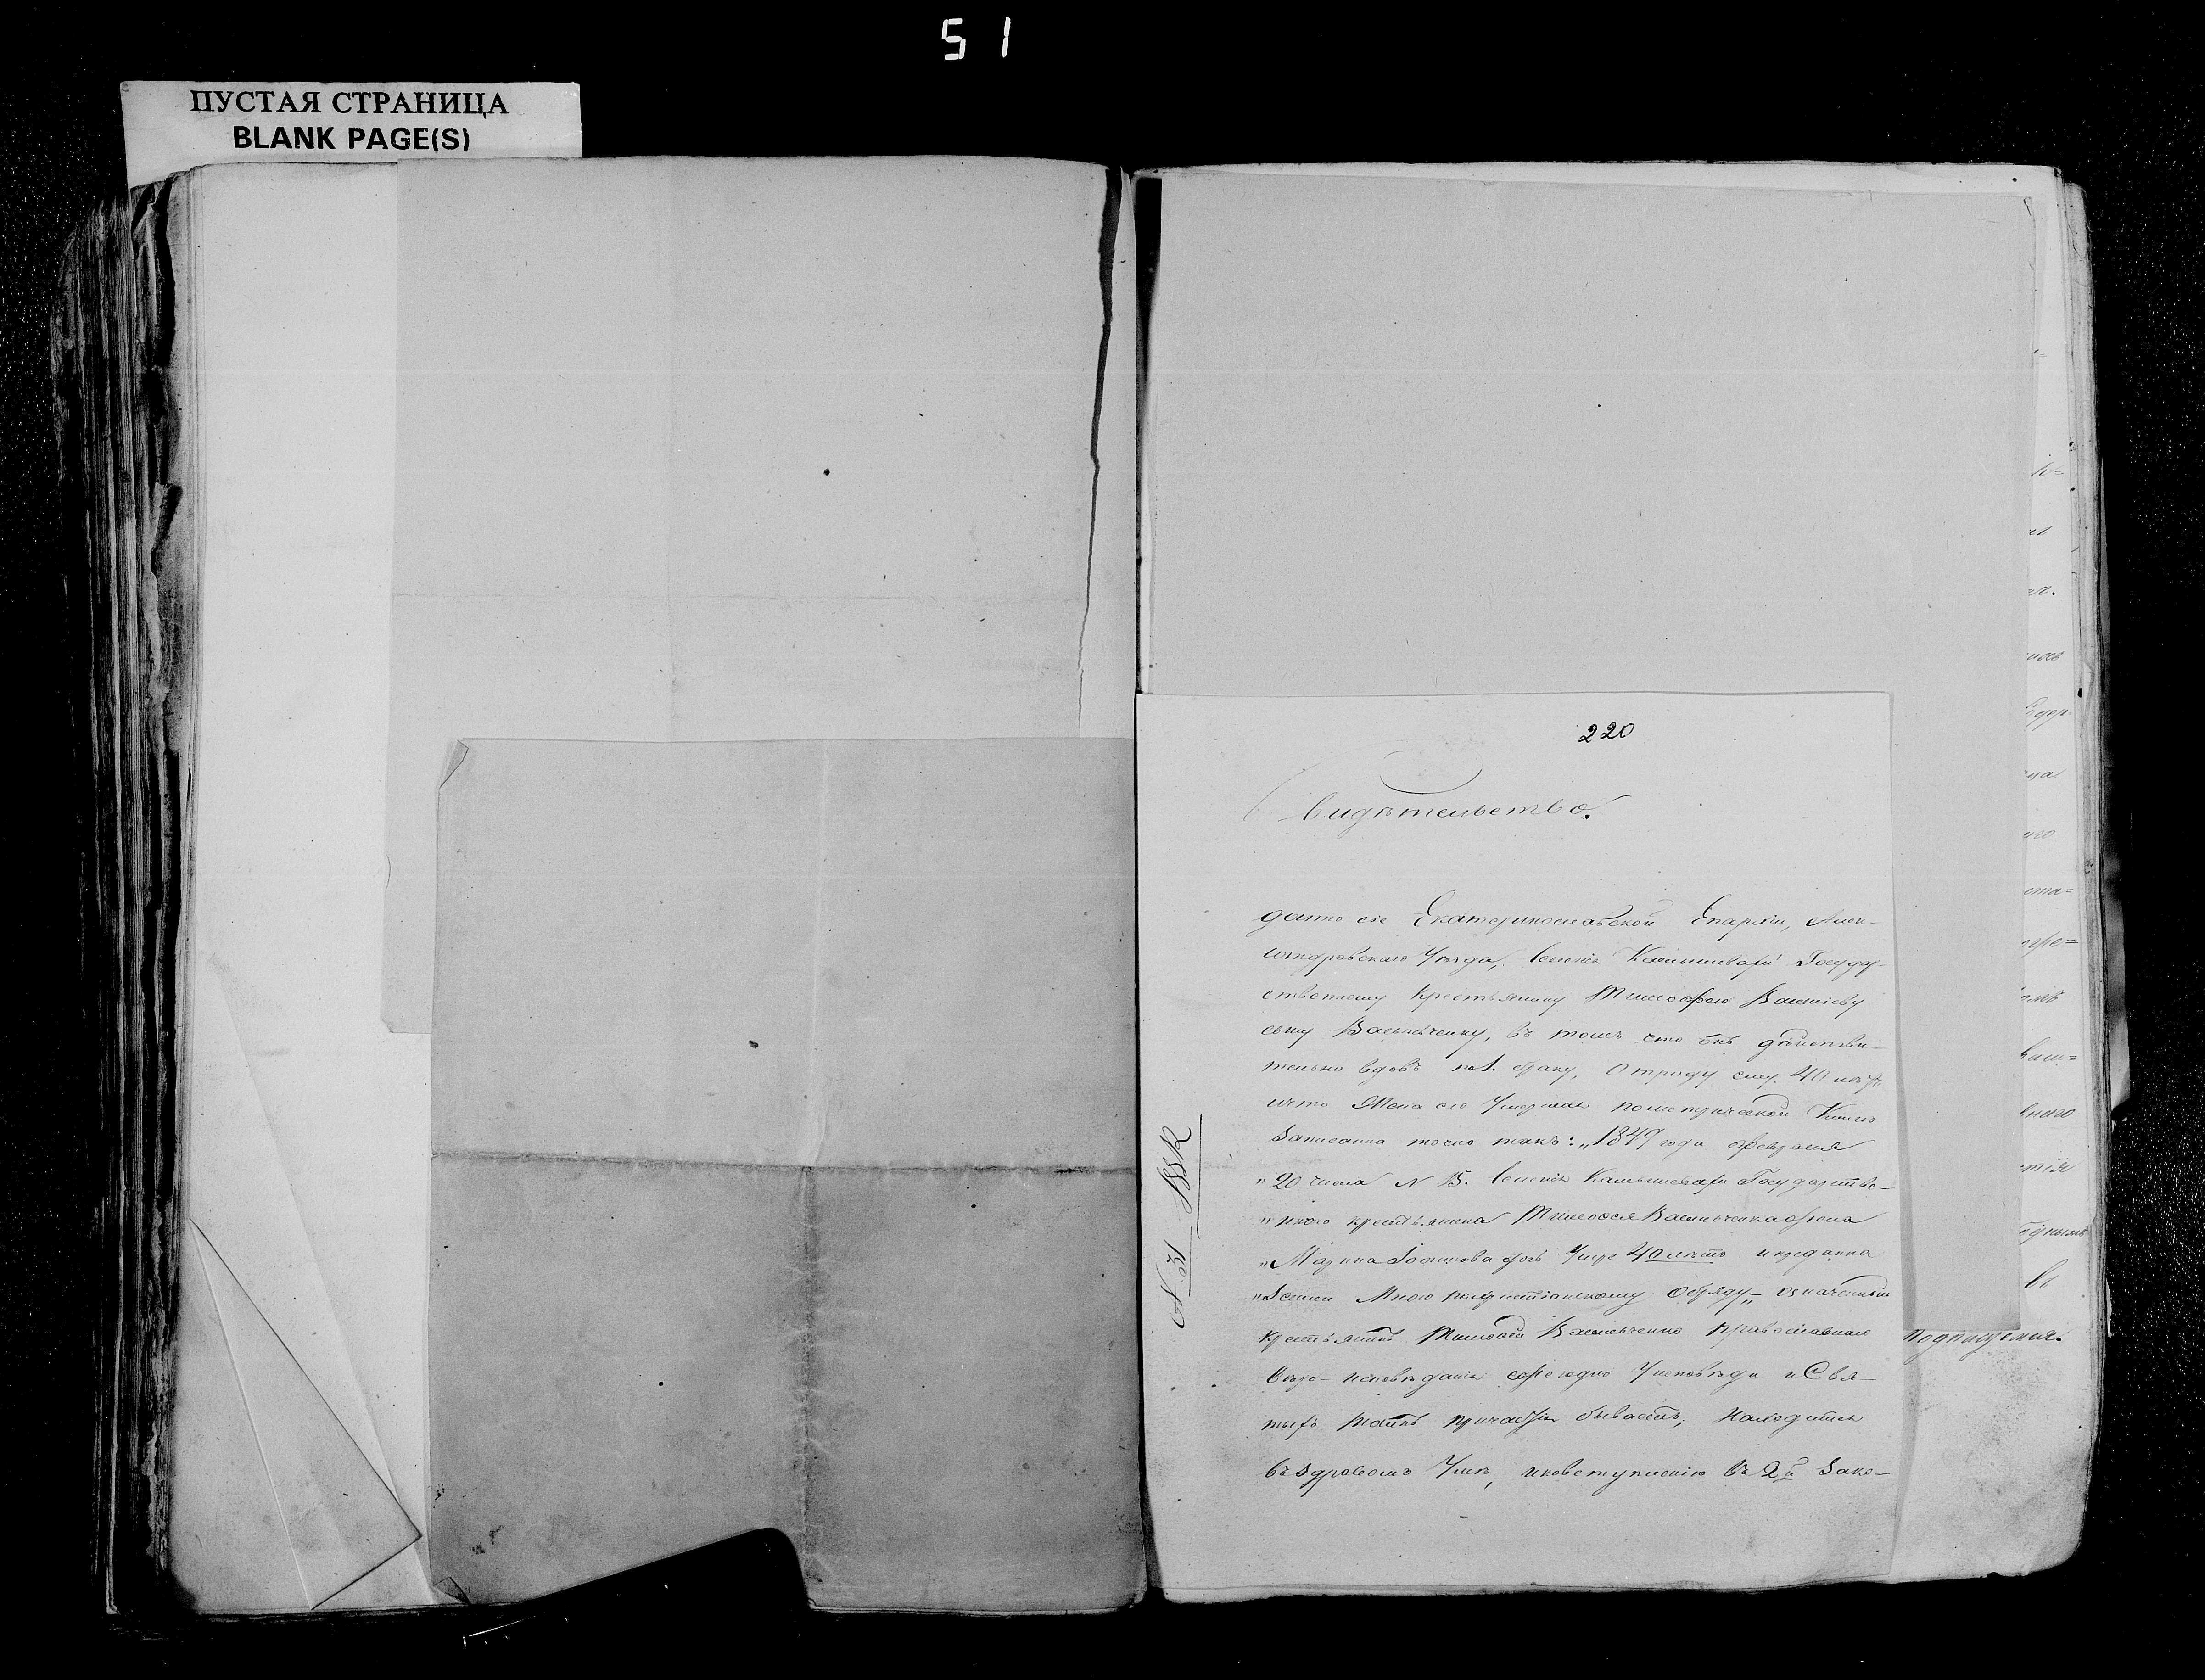 51
ПУСТАЯ СТРАНИЦА
BLANK PAGE(S)
220
Свидѣтельство.
дано сіе Екатеринославской Епархіи, Алек-
сандровскаго Уѣзда, Селенія Камышевахи Государ-
ственному крестьянину Тимофею Васильеву
сыну Васильченку, въ томъ что онъ дѣйстви-
тельно вдовъ по 1. браку, отроду ему 40 лѣтъ
что Жена его Умершая по метрической Книгѣ
Записанна точно такъ: „1849 года февраля
„20 числа N 15. Селенія Камышевахи Государстве-
„ннаго крестьянина Тимофея Васильченка жена
„Марина 40 лѣтъ и предана
„Земли Мною по христіанскому Обряду„ означенный
крестьянинъ Тимофей Васильченко православнаго
Вѣро-исповѣданія ежегодно Уисповѣди и Свя-
тыхъ таинъ причастія бываетъ, Находится
въ здравомъ Умѣ, и ко вступленію въ 2й Зако-
подписуемся.
въ